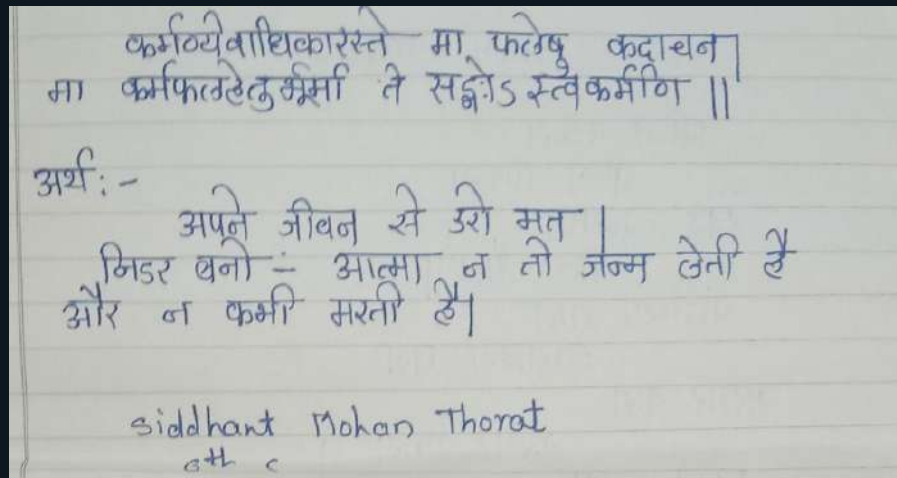 कर्मण्येवाधिकारस्ते मा फलेषु कदाचन|
मा कर्मफलहेतुर्भूर्मा ते सङ्गोऽस्त्वकर्मणि ||
अर्थ:-
अपने जीवन से डरो मत |
निडर बनो - आत्मा न तो जन्म लेती है
और न कभी मरती है|
Siddhant Mohan Thorat
6th c